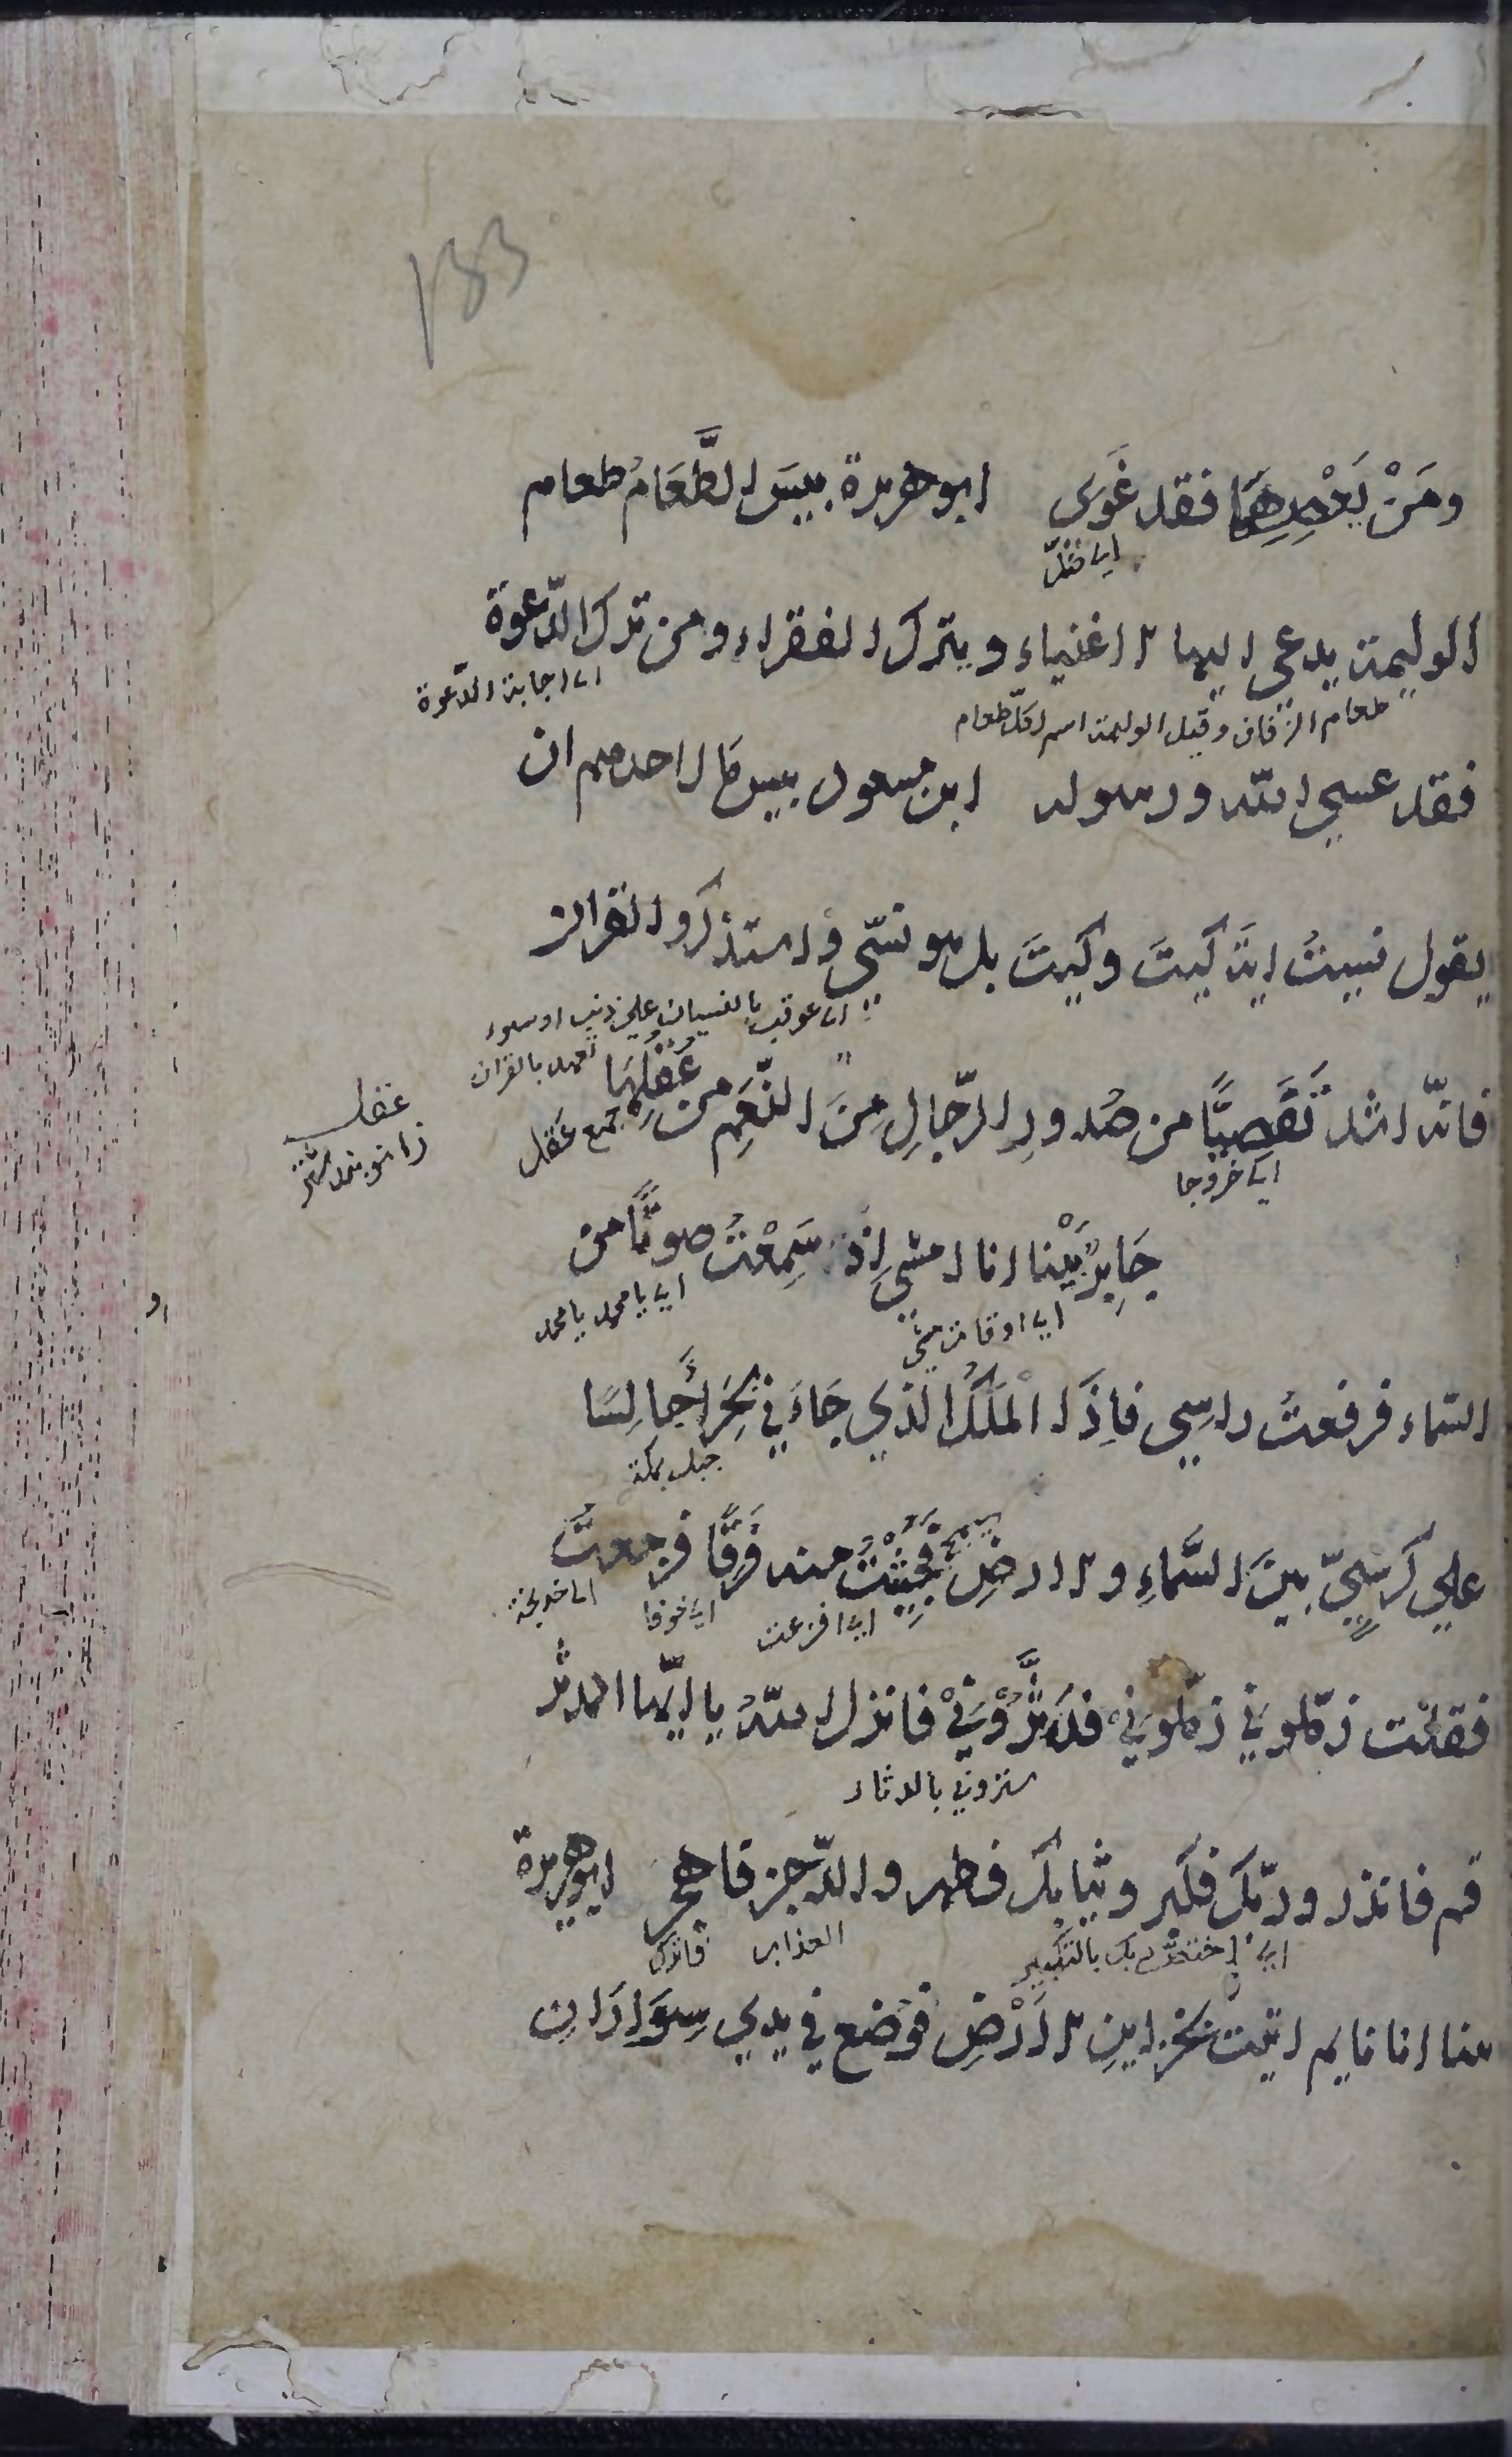 133
ومَنْ يَعْصِهِمَا فقد غَوَى ابو هريرة بيسَ الطَّعَامُ طعام
اي ضلّ
الوليمة يدعي اليها الاغنياء ويترك الفقراء ومن ترك الدّعوة
اي اجابة الدّعوة
طعام الزفاف وقيل الوليمة اسم لكلّ طعام
فقد عصي الله ورسوله ابن مسعود بيس مَا لاحدهم ان
يقول نسيتُ ايَةَ كيتَ وكيتَ بل هو نسّي واستذكروا القران
اي عوقب بالنسيان علي ذنب او سوء
تعهده بالقران
فانّه اشد تَفَصِيًّا من صُدورِ الرّجالِ مِنَ النَّعَمِ من عُقُلِهَا
جمع عقل
اي خروجا
عقل
زانو بند شتر
جَابِرٌ بَيْنا انا امشي اِذْ سَمِعْتُ صوتًا من
اي يا محمد يا محمد
اي اوقات مشي
السّماء فرفعتُ راسِي فاِذَا الْمَلَكُ الّذي جَاءَ نِي بحِرَاءَ جَالِسًا
جبل بمكة
علي كرسيّ بينَ السَّماءِ والارضِ فجُيِثْتُ منه فَرَقًا فرجعتُ
اي افزعت
اي خوفا
الي خديجة
فقلت زمّلوني زمّلوني فدَثَّرُوْنِيْ فانزل اللهُ يا ايّها المدثر
ستروني بالدثار
قم فانذر وربّك فكبر وثيابك فطهر والرّجز فاهجر ابو هريرة
اي اختصّ ربك بالتكبير
العذاب
فاترك
بينا انا نايم اتيت بخزاينِ الاَرْضِ فوضع في يدي سِوَارَانِ